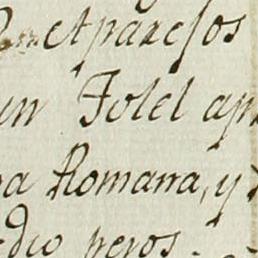 et pare sos
un Folel ap
a Romana, y
dio pesos.